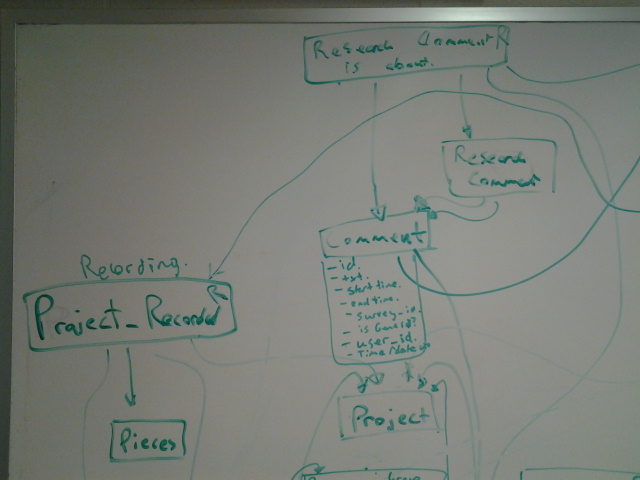 Research Comment
is about.
Research
Comment
Comment
- id.
- txt.
- start time.
- end time.
- survey-id.
- user_id.
Recording.
Project_Recorded
Pieces
Project